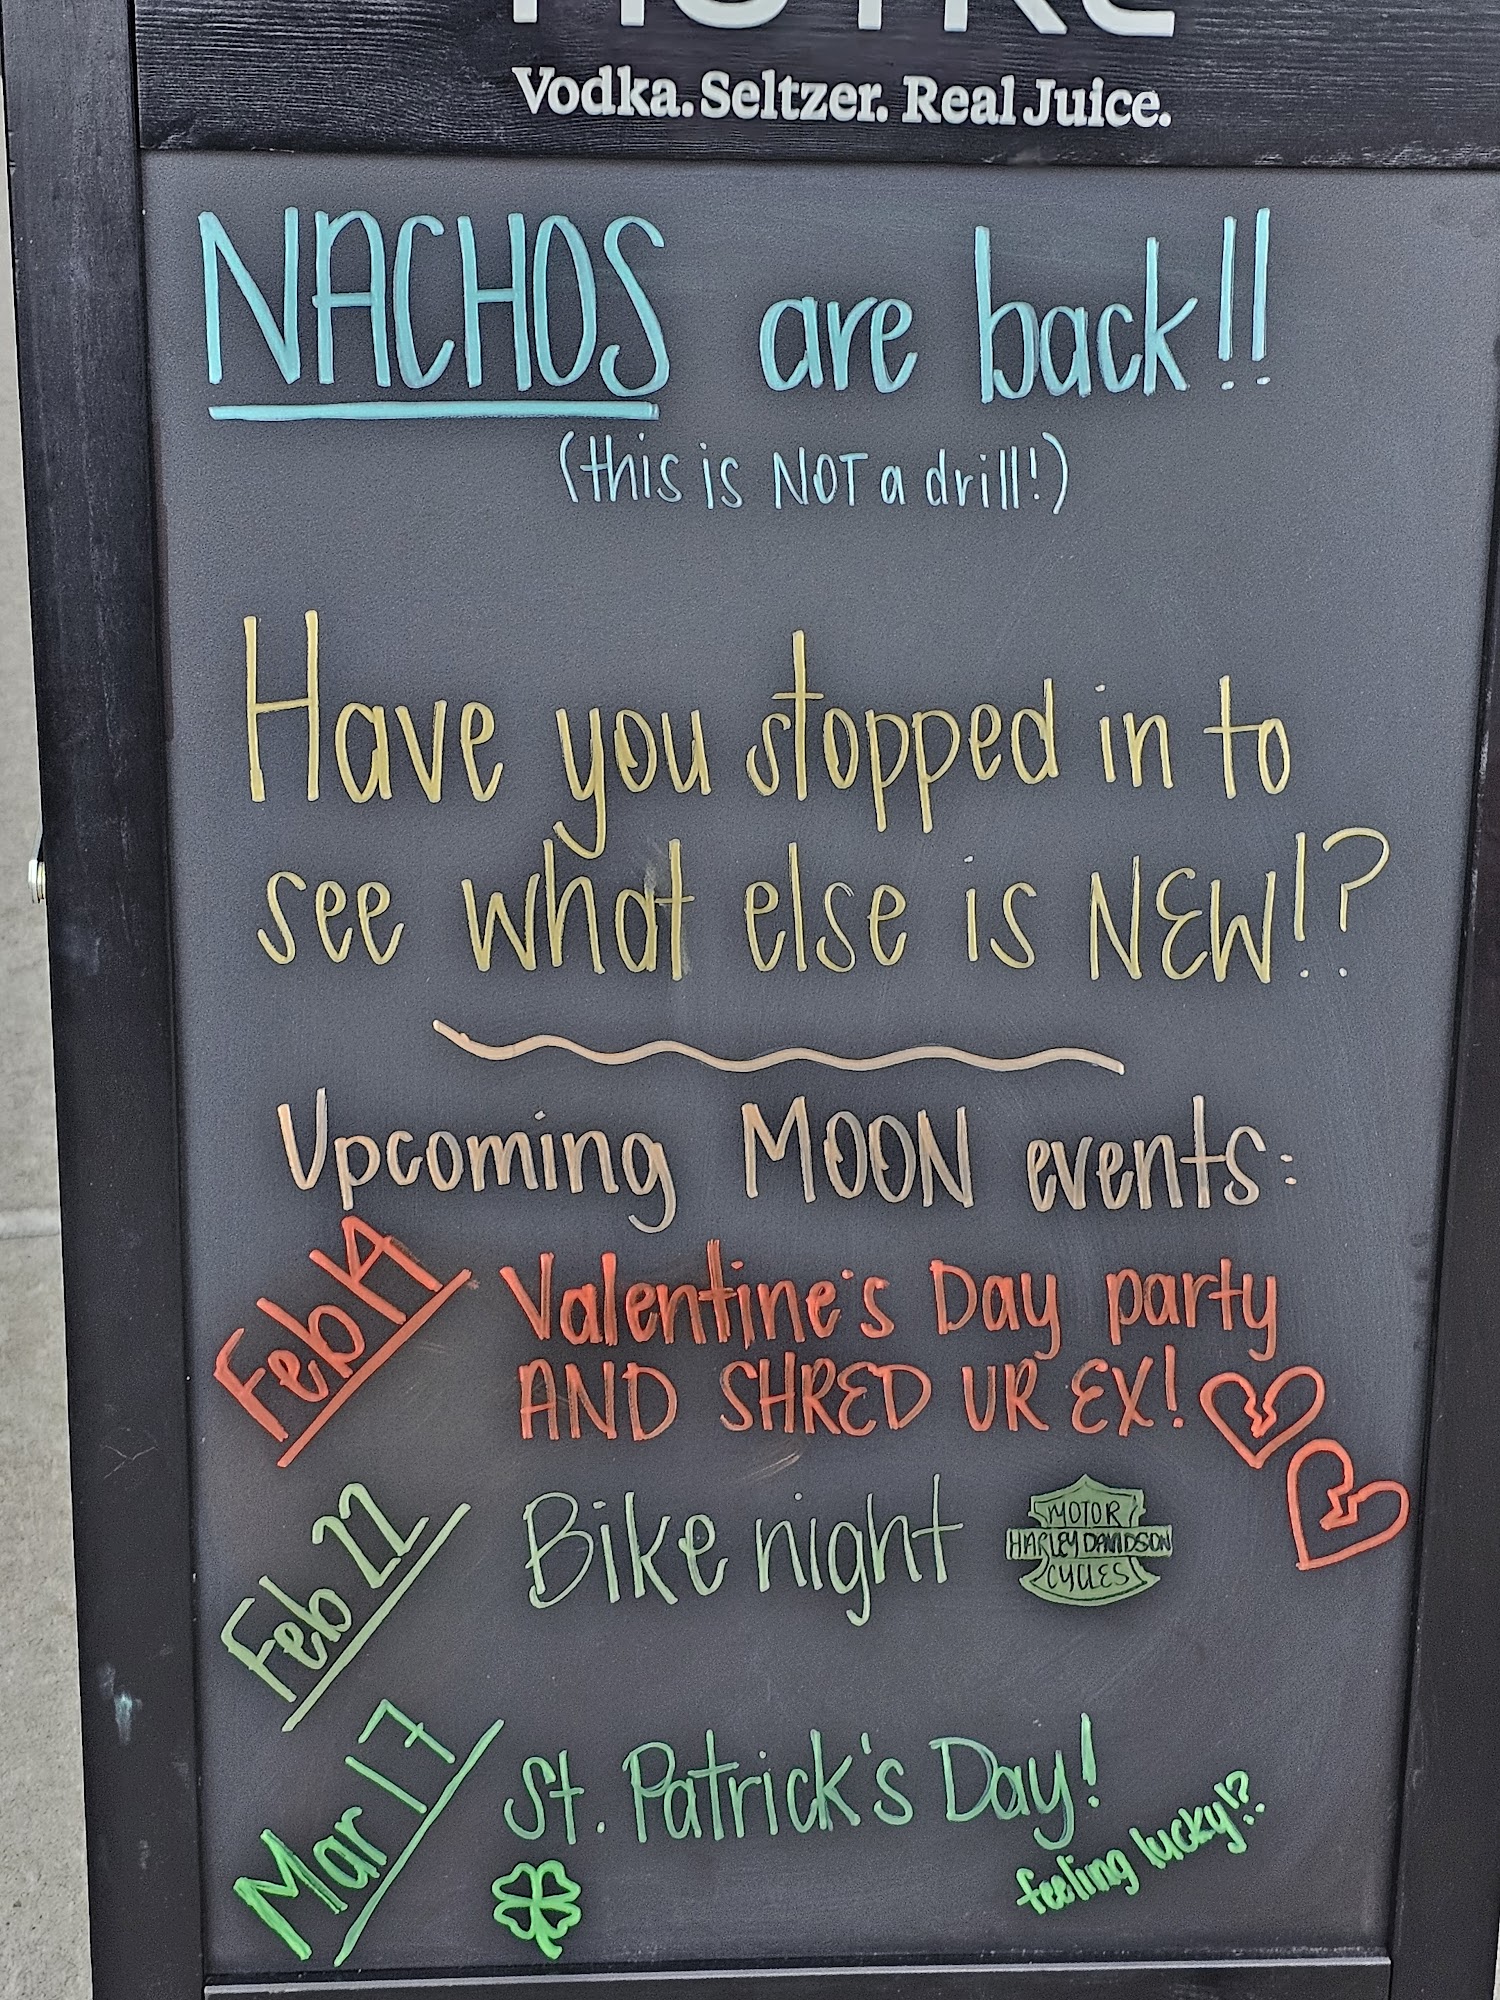 Vodka. Seltzer. Real Juice.
NACHOS are back!!
(this is NOT a drill!)
Have you stopped in to
see what else is NEW!?
Upcoming MOON events:
Feb 14
Valentine's Day party
AND SHRED UR EX!
Feb 22
Bike night
MOTOR
HARLEY DAVIDSON
CYCLES
Mar 17
St. Patrick's Day!
feeling lucky!?